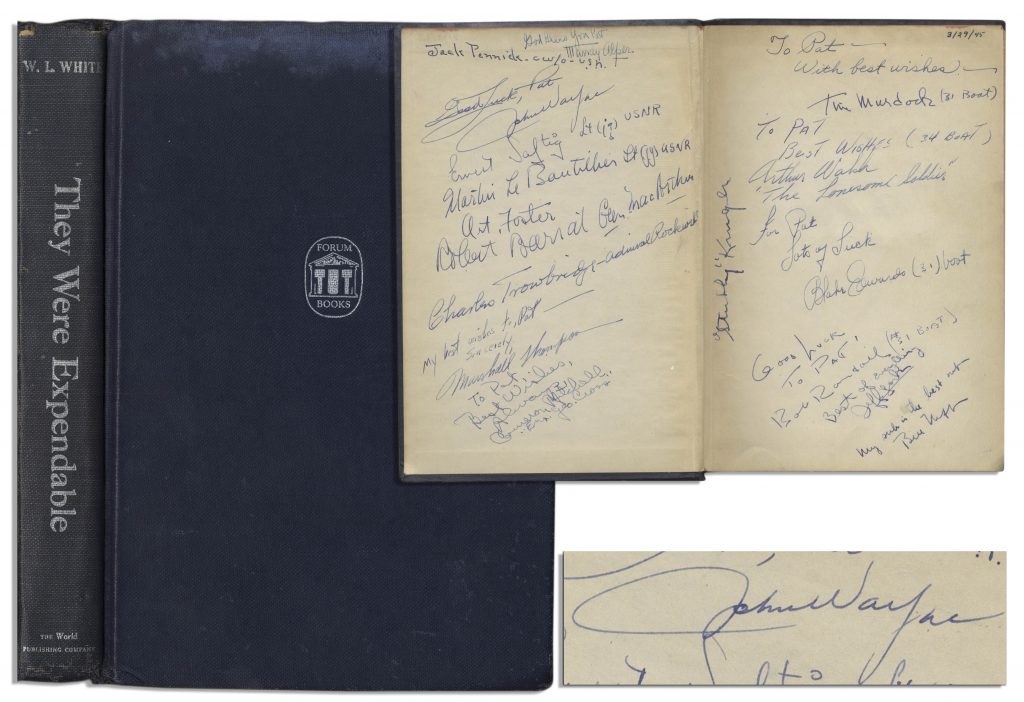 W. L. WHITE
They Were Expendable
THE World
PUBLISHING COMPANY
FORUM
BOOKS
Jack Pennick - cw/o - USN.
Murray Alper.
Good Luck, Pat
John Wayne
Ernest Saftig Lt (jg) USNR
Martin Le Bautilier Lt (jg) USNR
Art Foster
Robert Barrat Gen. MacArthur
Charles Trowbridge - Admiral Rockwell
My best wishes to, Pat -
Sincerely,
Marshall Thompson
To Pat
Best Wishes,
Cameron Mitchell
3/29/45
To Pat -
With best wishes -
Tim Murdock (31 Boat)
To PAT
Best Wishes (34 BOAT)
Arthur Walsh
"The Lonesome Soldier"
for Pat
Lots of Luck
Blake Edwards (31) boat
"Stubby" Kruger
Good Luck
To PAT!
Best of everything
my side is the best not
John Wayne